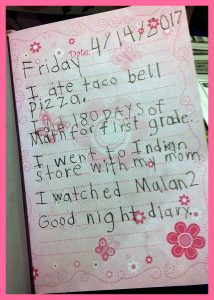 Date: 4/14/2017
Friday
I ate taco bell
pizza.
I did 180 DAYS of
Math for first grade.
I went to Indian
store with my mom
I watched Mulan2
Good night diary.